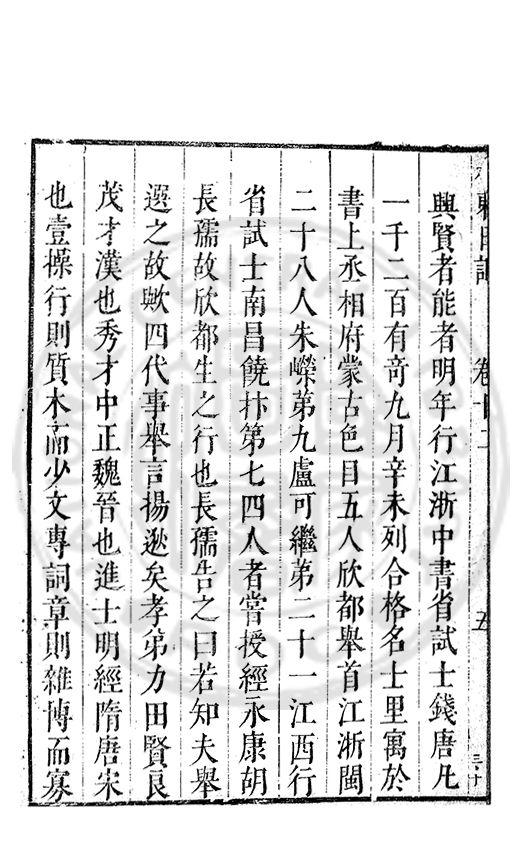 卷十二
五
興賢者能者明年行江浙中書省試士錢唐凡
一千二百有奇九月辛未列合格名士里寓於
書上丞相府蒙古色目五人欣都舉首江浙閩
二十八人朱嶸第九盧可繼第二十一江西行
省試士南昌饒抃第七四人者嘗授經永康胡
長孺故欣都生之行也長孺告之曰若知夫舉
選之故歟四代事舉言揚逖矣孝弟力田賢良
茂才漢也秀才中正魏晉也進士明經隋唐宋
也壹操行則質木而少文專詞章則雜博而寡